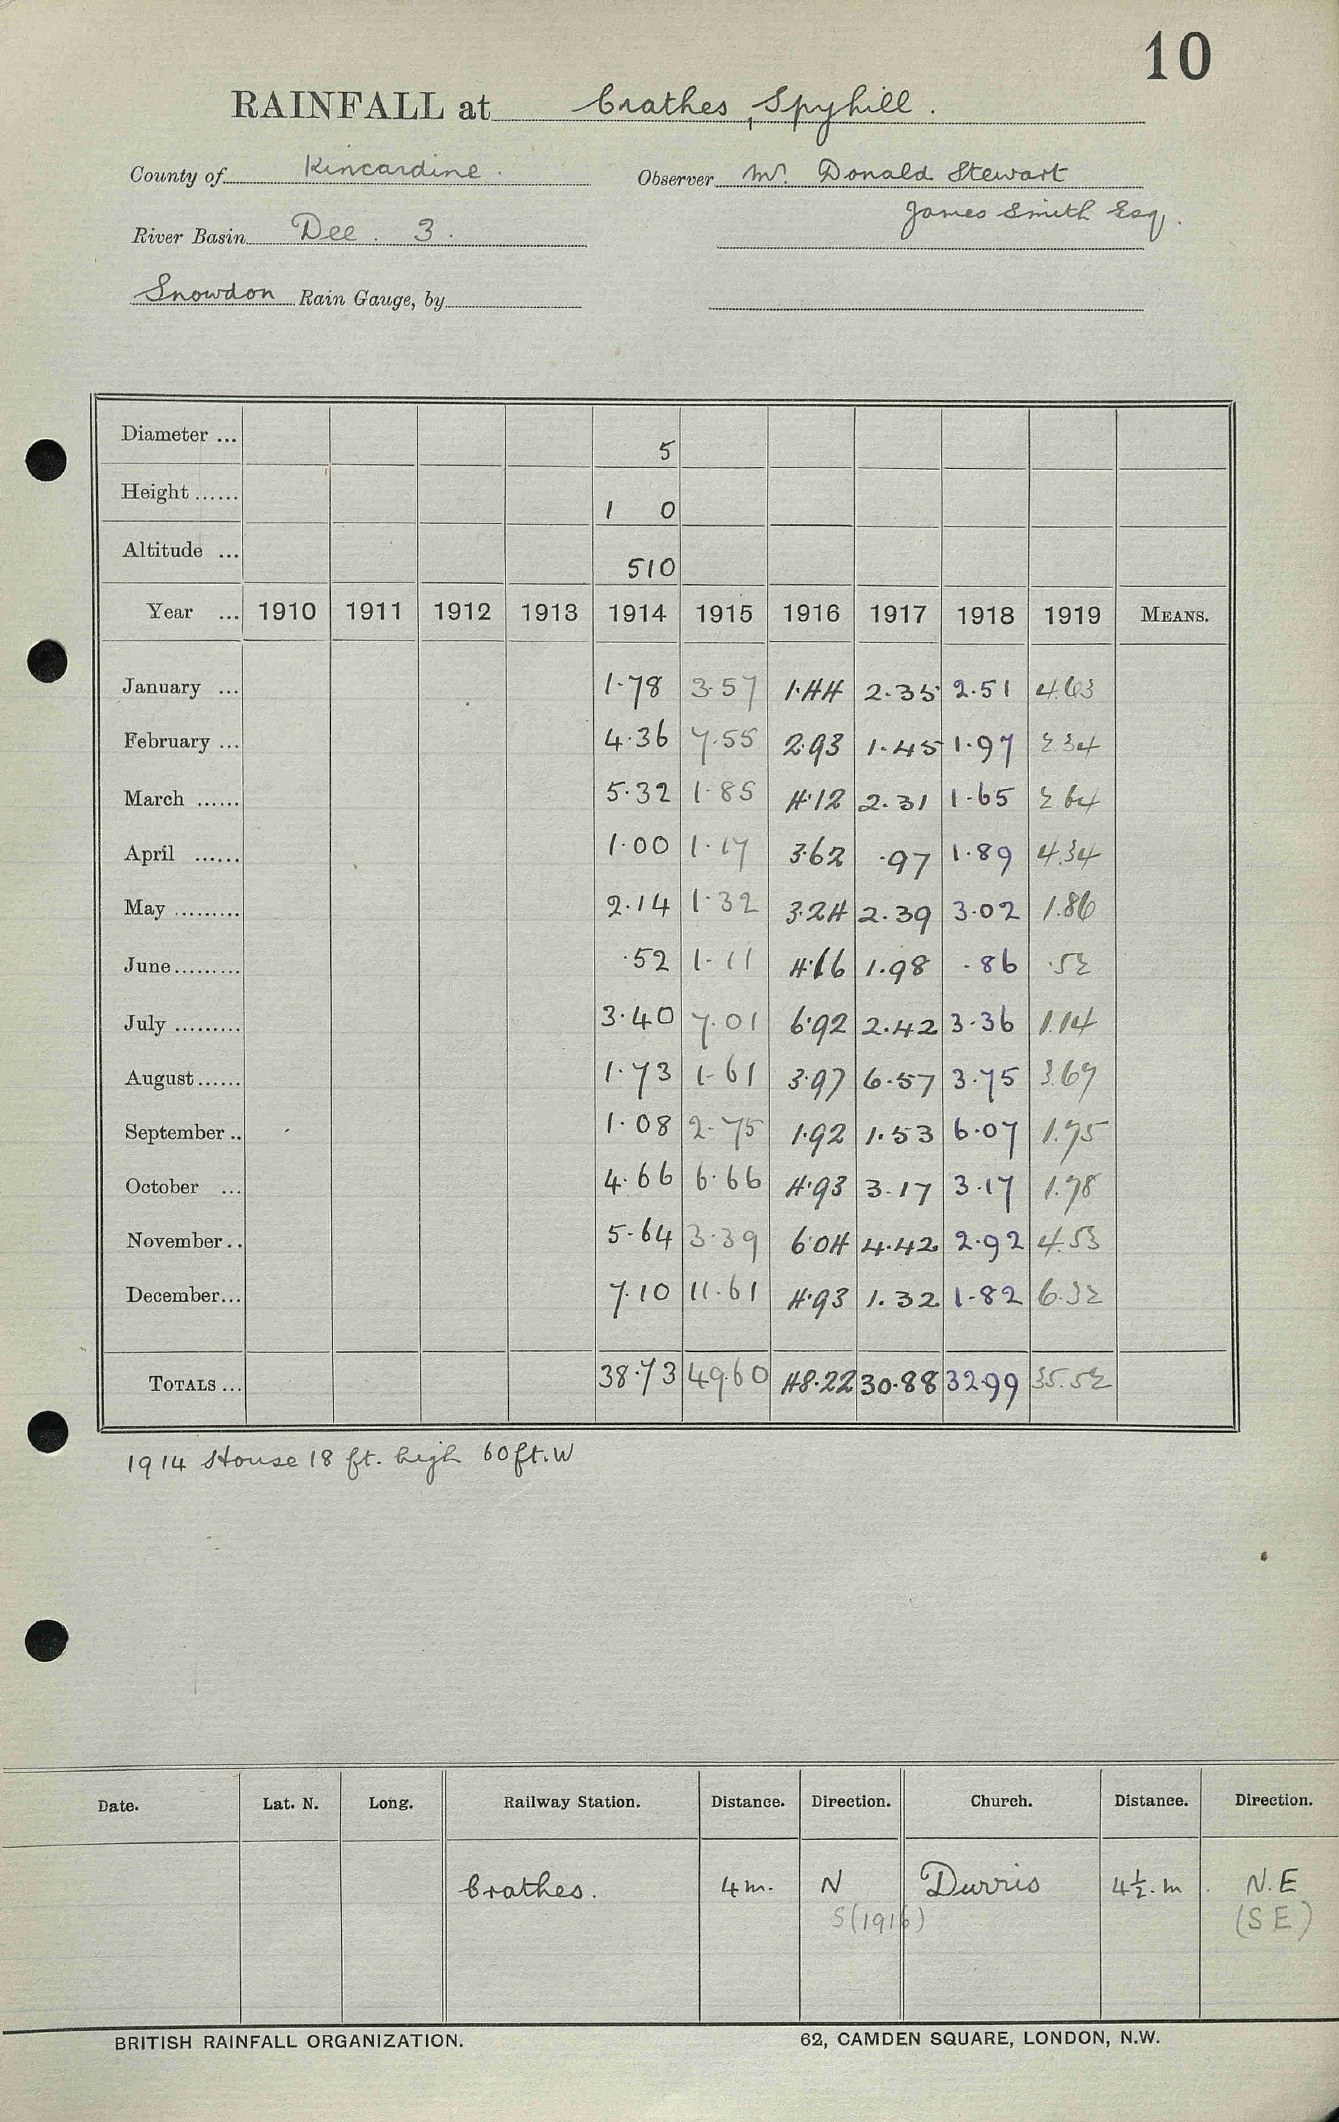 10
RAINFALL at Crathes, Spyhill.
County of Kincardine. Observer Mr. Donald Stewart
James Smith Esq.
River Basin Dee. 3.
Snowdon Rain Gauge, by
Diameter ... 5
Height ...... 1 0
Altitude ... 510
Year ... 1910 1911 1912 1913 1914 1915 1916 1917 1918 1919 MEANS.
January ... 1.78 3.57 1.44 2.35 2.51 4.63
February ... 4.36 7.55 2.93 1.45 1.97 2.34
March ...... 5.32 1.85 4.12 2.31 1.65 2.64
April ...... 1.00 1.17 3.62 .97 1.89 4.34
May ......... 2.14 1.32 3.24 2.39 3.02 1.86
June......... .52 1.11 4.16 1.98 .86 .52
July ......... 3.40 7.01 6.92 2.42 3.36 1.14
August...... 1.73 1.61 3.97 6.57 3.75 3.67
September .. 1.08 2.75 1.92 1.53 6.07 1.75
October ... 4.66 6.66 4.93 3.17 3.17 1.78
November .. 5.64 3.39 6.04 4.42 2.92 4.53
December... 7.10 11.61 4.93 1.32 1.82 6.32
TOTALS ... 38.73 49.60 48.22 30.88 32.99 35.52
1914 House 18 ft. high 60 ft. W
Date. Lat. N. Long. Railway Station. Distance. Direction. Church. Distance. Direction.
Crathes. 4 m. N Durris 4½ . m. N.E
S (1916) (S E)
BRITISH RAINFALL ORGANIZATION. 62, CAMDEN SQUARE, LONDON, N.W.